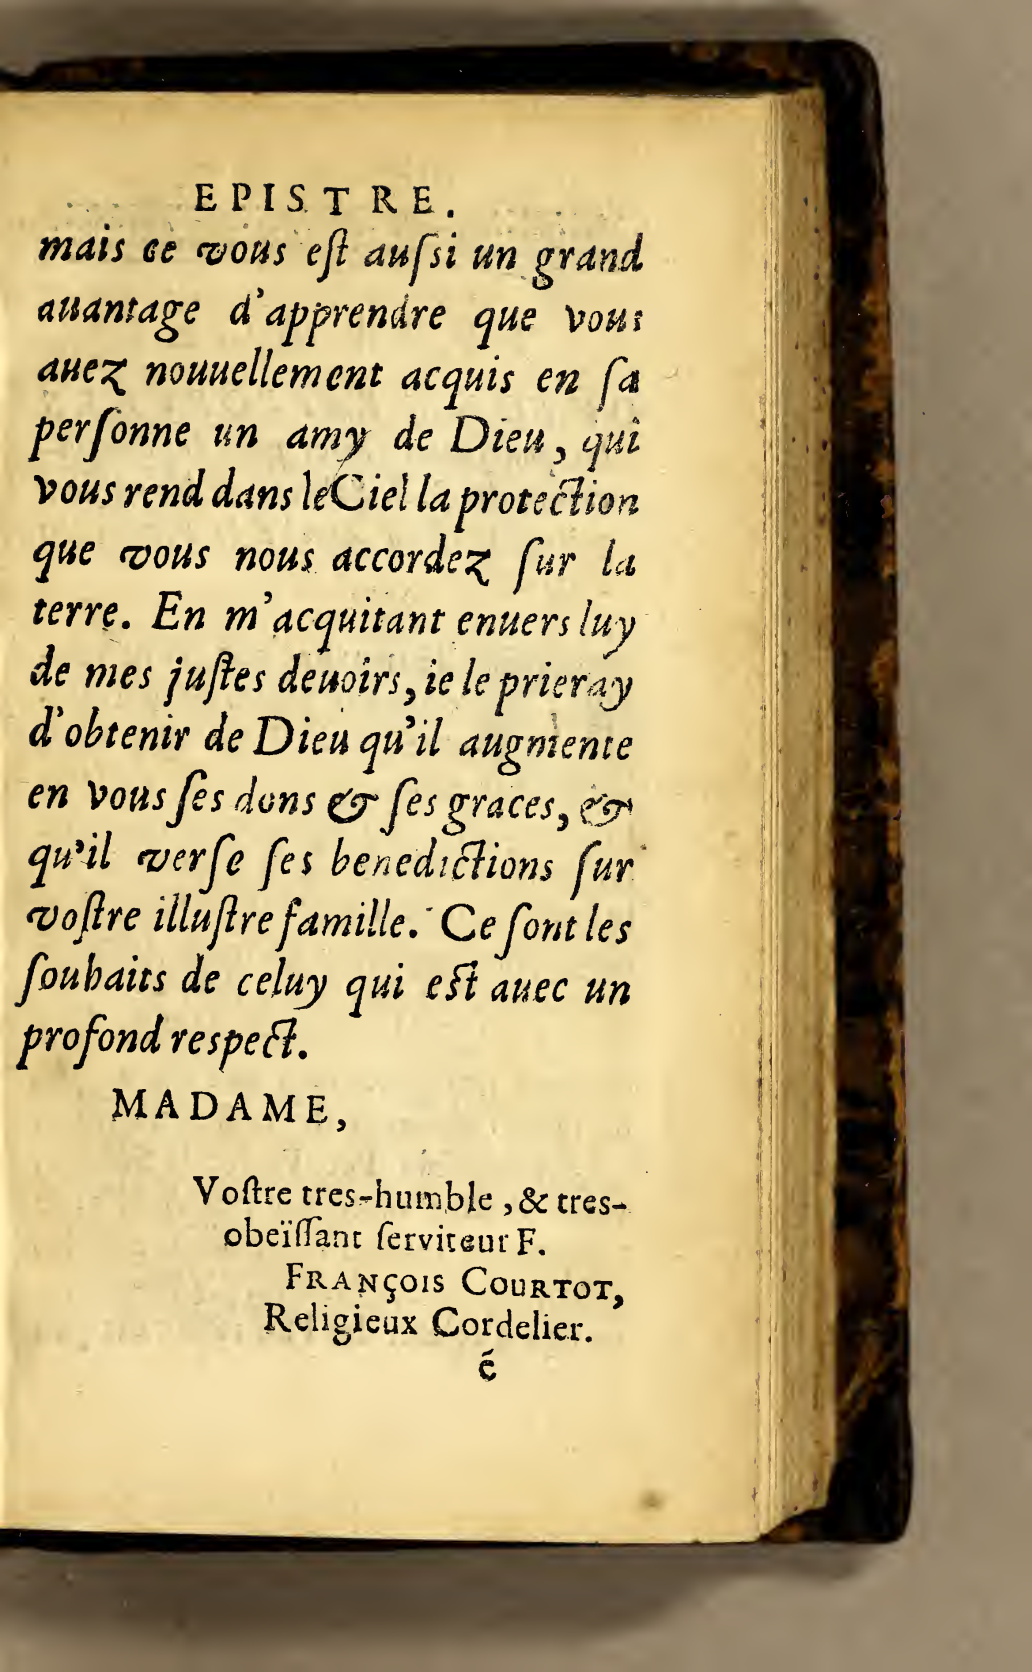 EPISTRE.
mais ce vous eſt auſsi un grand
auantage d'apprendre que vous
auez nouuellement acquis en ſa
perſonne un amy de Dieu, qui
vous rend dans le Ciel la protection
que vous nous accordez ſur la
terre. En m'acquitant enuers luy
de mes juſtes deuoirs, ie le prieray
d'obtenir de Dieu qu'il augmente
en vous ſes dons & ſes graces, &
qu'il verſe ſes benedictions ſur
voſtre illuſtre famille. Ce ſont les
ſouhaits de celuy qui eſt auec un
profond respect.
MADAME,
Voſtre tres-humble, & tres-
obeïſſant ſerviteur F.
FRANÇOIS COURTOT,
Religieux Cordelier.
é